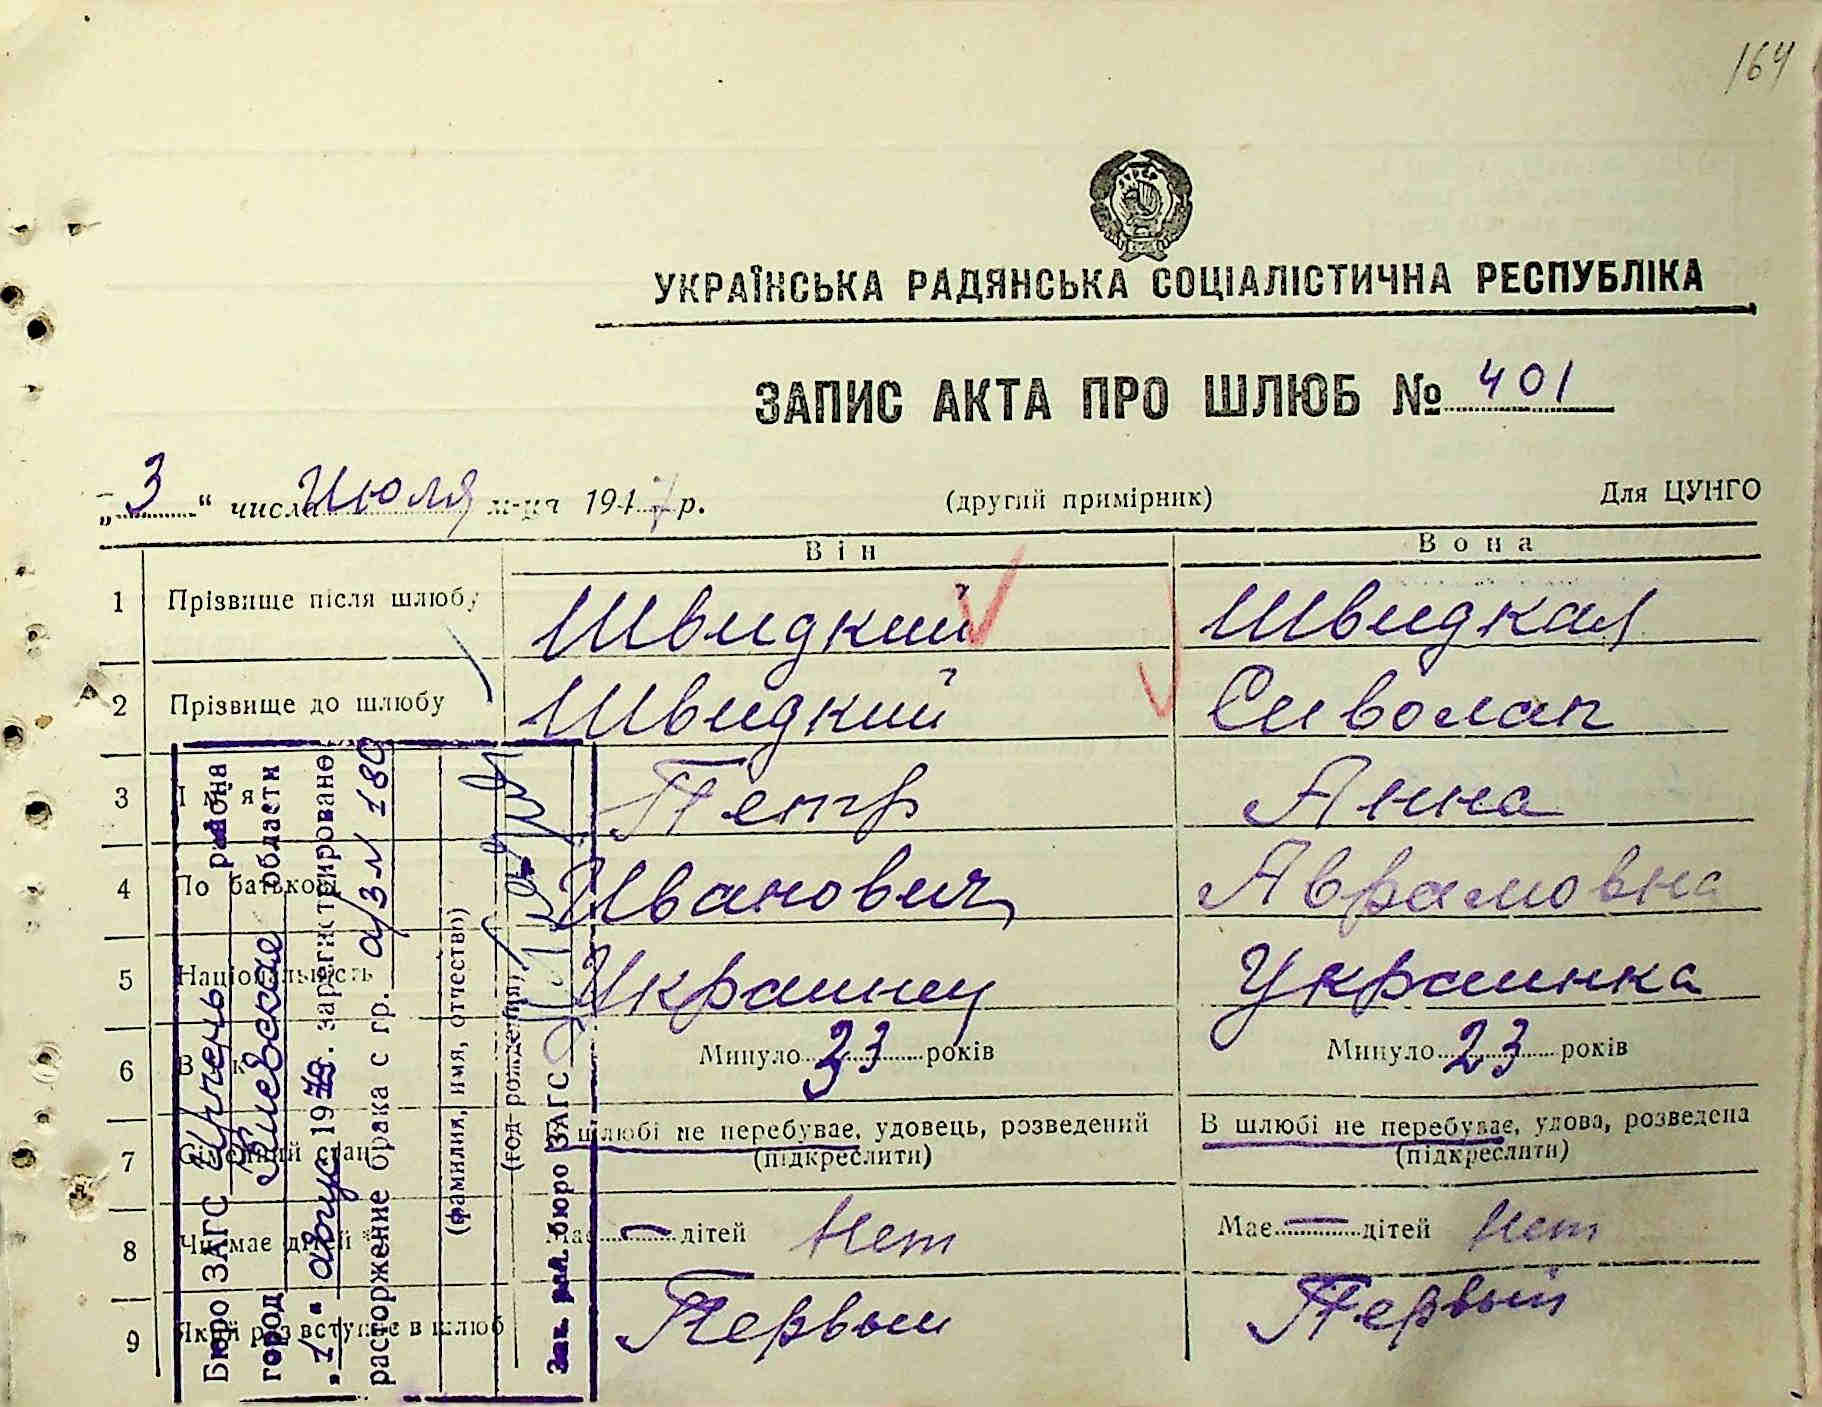 164
УКРАЇНСЬКА РАДЯНСЬКА СОЦІАЛІСТИЧНА РЕСПУБЛІКА
ЗАПИС АКТА ПРО ШЛЮБ № 401
„3“ числа Июля м-ця 1947 р. (другий примірник) Для ЦУНГО
Він Вона
1 Прізвище після шлюбу Швидкий Швидкая
2 Прізвище до шлюбу Швидкий Сиволап
3 Ім'я Петр Анна
4 По батькові Иванович Аврамовна
5 Національність Украинец Украинка
6 Вік Минуло 23 років Минуло 23 років
7 Сімейний стан В шлюбі не перебуває, удовець, розведений В шлюбі не перебуває, удова, розведена
(підкреслити) (підкреслити)
8 Чи має дітей Має — дітей Нет Має — дітей Нет
9 Який раз вступає в шлюб Первый Первый
Бюро ЗАГС Ирпень района
город Киевская области
„1“ август 1978. зарегистрировано
расторжение брака с гр. а/з № 180
(фамилия, имя, отчество)
(год рождения)
Зав. рай. бюро ЗАГС